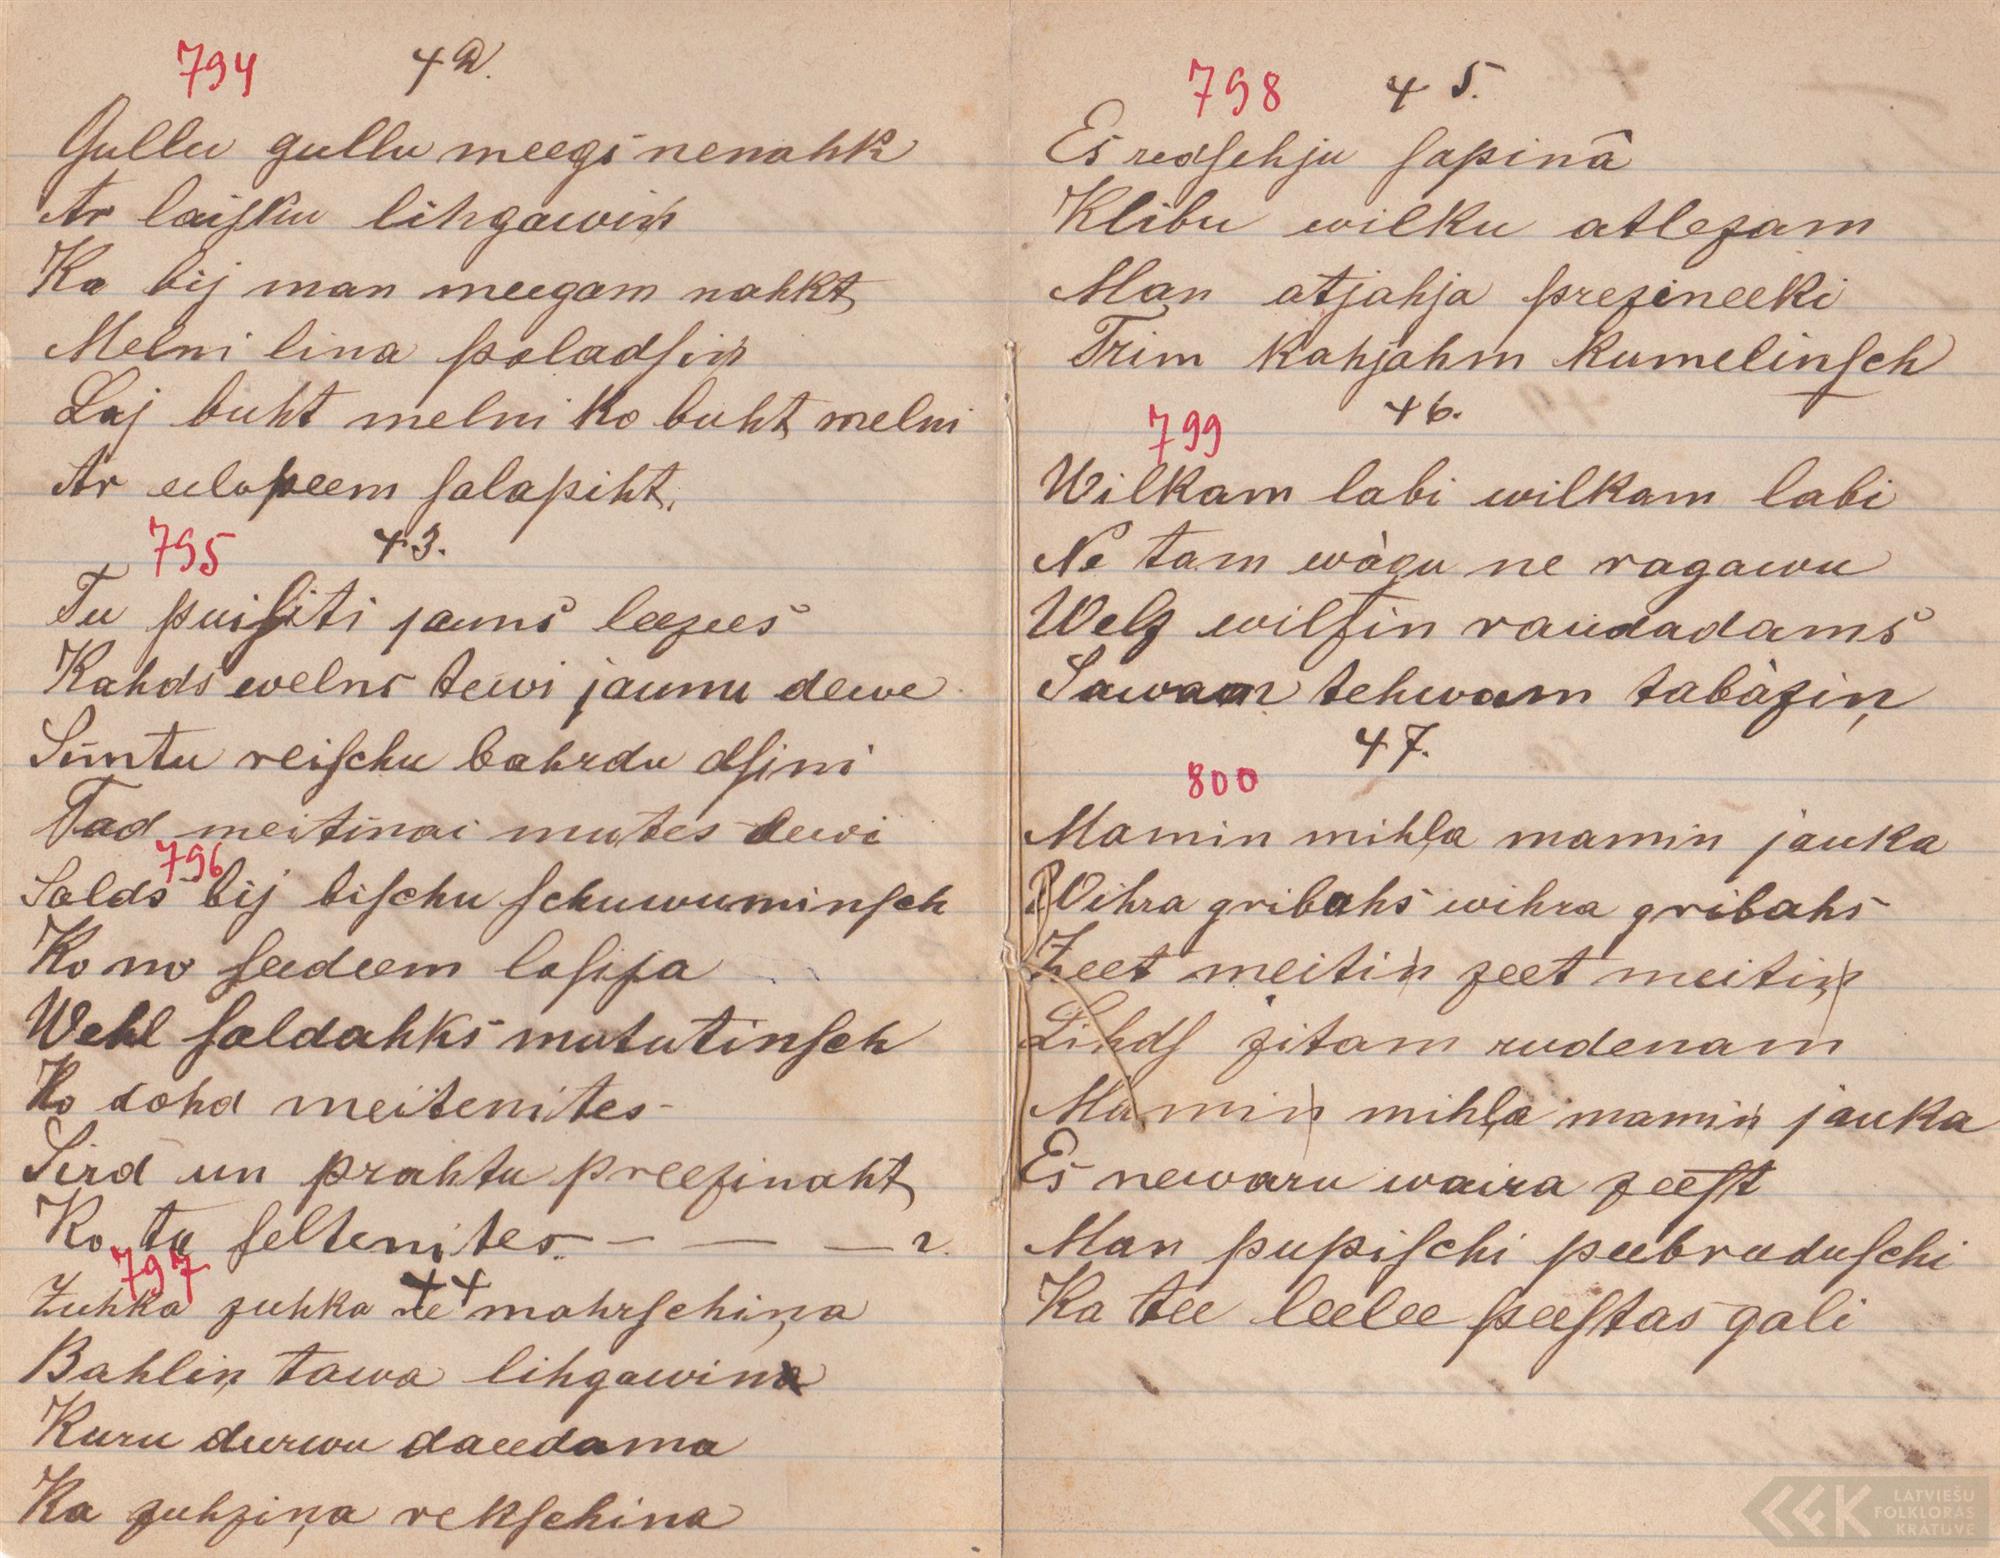 794 42.
Gullu gullu meegs nenahk
Ar laisku lihgawiņ
Ka bij man meegam nahkt
Melni lina paladsiņ
Laj buht melni ko buht melni
Ar eelapeem salapiht.
795 43.
Tu puisiti jauns leezees
Kahds welns tewi jaunu dewe
Simtu reischu bahrdu dsini
Tad meitinai mutes dewi
796
Salds bij bischu schuwuminsch
Ko no seedeem lasija
Wehl saldahks mututinsch
Ko dohd meitenites
Sird un prahtu preezinaht
Ko tu seltenites — — —
797 44
Zuhka zuhka ne mahrschiņa
Bahliņ tawa lihgawina
Kuru durwu daeedama
Ka zuhziņa rekschina
798 45.
Es redsehju sapinā
Klibu wilku atlezam
Man atjahja prezineeki
Trim kahjahm kumelinsch
799 46.
Wilkam labi wilkam labi
Ne tam wàgu ne ragawu
Welz wilzin raudadams
Sawam tehwam tabàziņ
47.
800
Mamin mihļa mamin jauka
Wihra gribahs wihra gribahs
Zeet meitiņ zeet meitiņ
Lihds zitam rudenam
Mamiņ mihļa mamiņ jauka
Es newaru waira zeest
Man pupischi peebreeduschi
Ka tee leelee peestas gali
LATVIEŠU
FOLKLORAS
KRĀTUVE